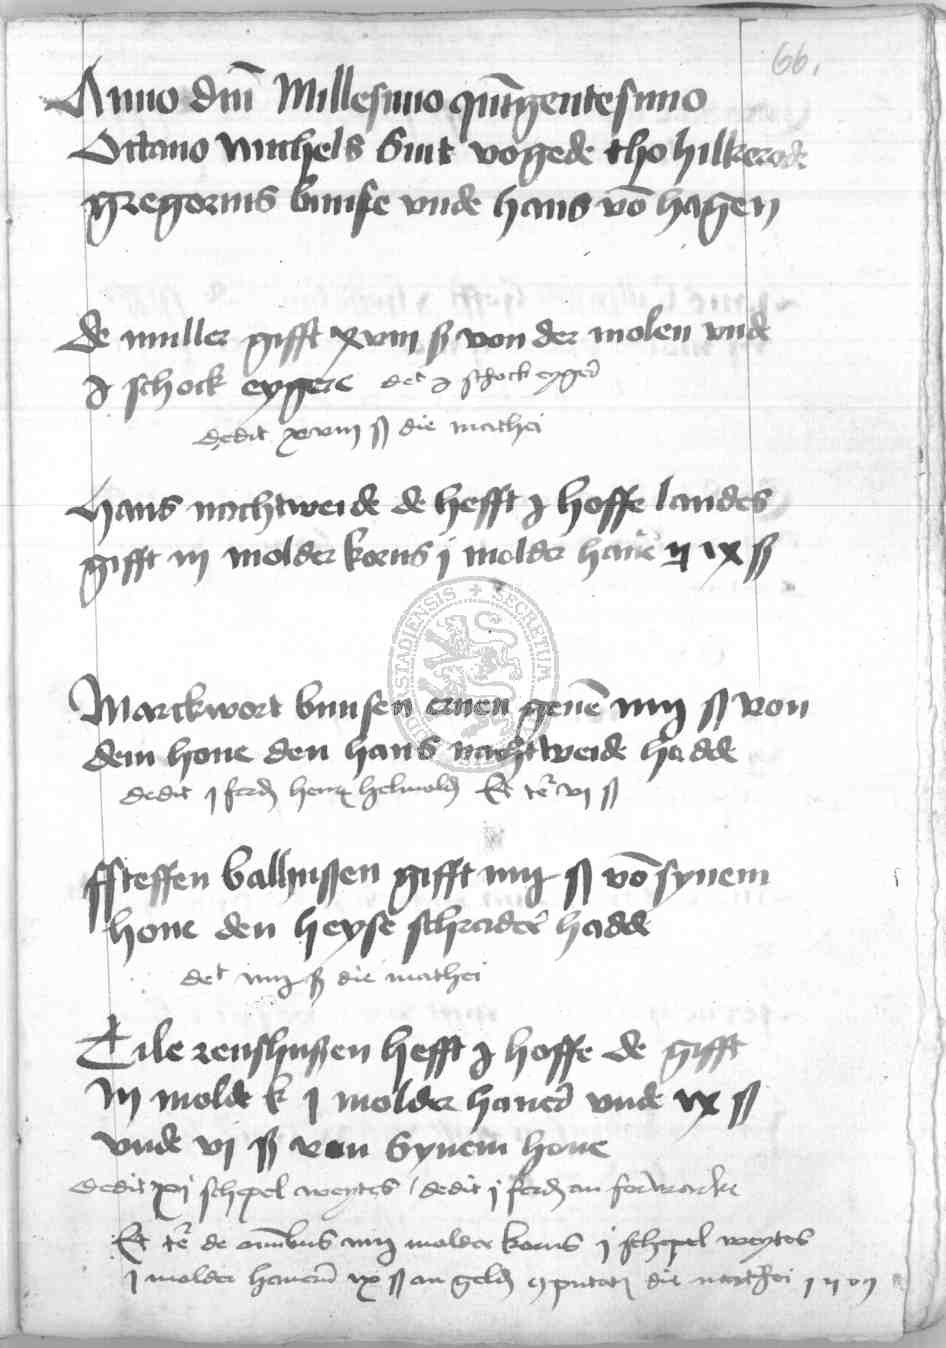 66.
Anno dm̄ Millesimo qui̅gentesimo
Octauo Michels Sint vogede tho hilkerode
gregorius bunse vnde hans vō hagen
de muller gifft xviii ß von der molen vnde
j schock eygere det j schock eyger
dedit xviii ß die mathei
hans nachtweide de hefft j hoffe landes
gifft iij molder korns j molder hauer ix ß
Marckwort bunsen eruen geuē iiij ß von
dem houe den hans nachtweide hadde
dedit j ferd henr helmold Et te vj ß
ffsteffen ballhußen gifft iiij ß vō synem
houe den heyse schrader hadde
det iiij ß die mathei
Tile renshußen hefft j hoffe de gifft
iij molde k j molder hauer vnde ix ß
vnde vj ß von Synem houe
dedit xj schepel weytes / dedit j ferd an
Et te de omnibus iiij molder korns j schepel weytes
j molder hauer ix ß an geld die mathei
SECRETUM